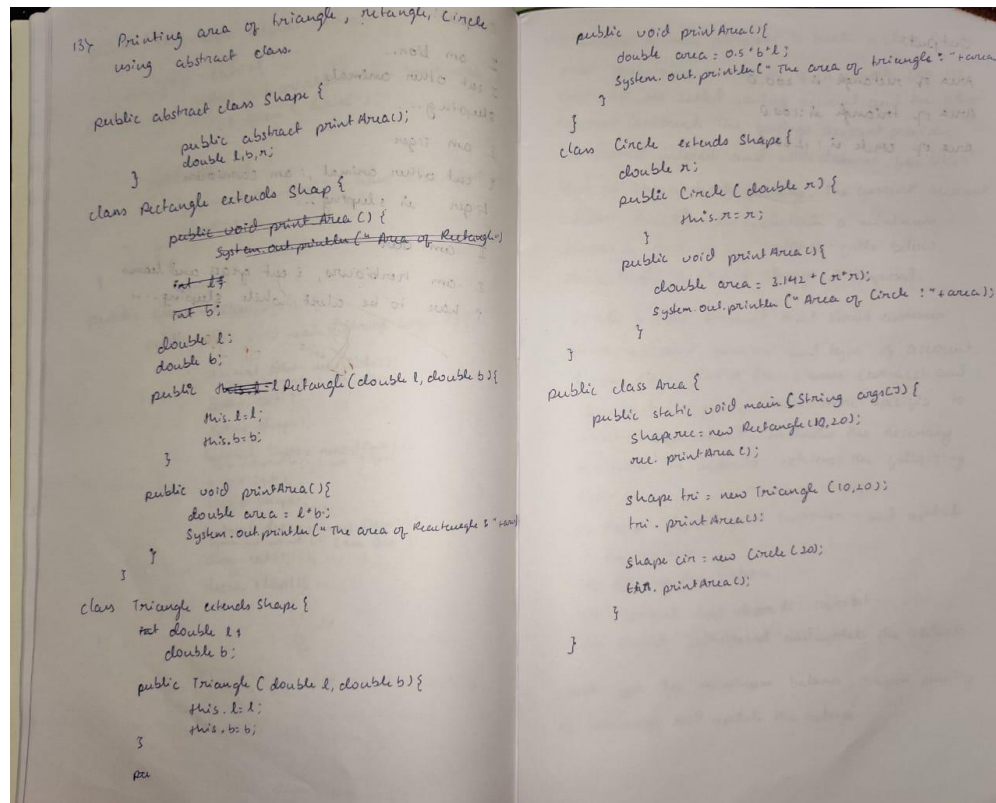 13) Printing area of triangle, retangle, Circle
using abstract class.
public abstract class Shape {
public abstract print Area();
double l,b,r;
}
class Rectangle extends Shap {
public void print Area () {
System.out.println(" Area of Rectangle")
int l;
int b;
double l;
double b;
public this.l=l Rectangle(double l, double b){
this.l=l;
this.b=b;
}
public void printArea(){
double area = l*b;
System.out.println(" The area of :"+area)
}
}
class Triangle extends Shape {
int double l;
double b;
public Triangle ( double l, double b){
this.l=l;
this.b=b;
}
pu
public void printArea(){
double area = 0.5*b*l;
System.out.println(" The area of triangle : "+area
}
}
class Circle extends Shape{
double r;
public Circle ( double r) {
this.r=r;
}
public void printArea(){
double area = 3.142*(r*r);
System.out.println ("Area of Circle :"+area);
}
}
public class Area {
public static void main (String args[]) {
shape rec = new Rectangle(10,20);
rec. printArea();
shape tri = new Triangle (10,20);
tri. printArea();
shape cir = new Circle (20);
printArea();
}
}